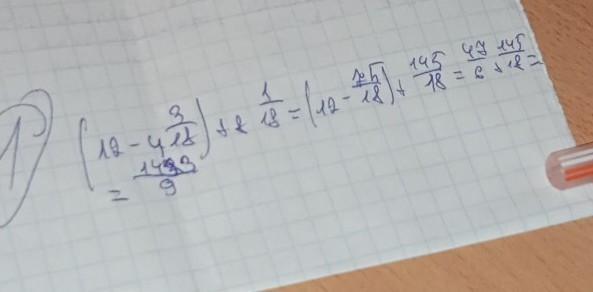 1)
(12 - 4 3/18) + 8 1/18 = (12 - 75/18) + 145/18 = 47/6 + 145/18 =
= 143/9